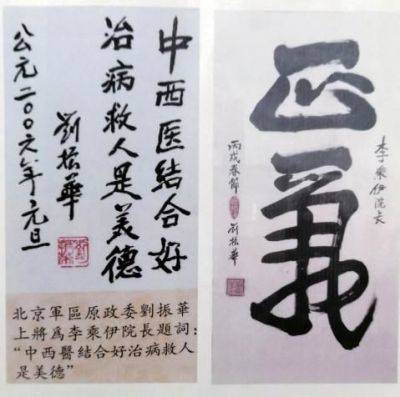 中西医结合好
治病救人是美德
劉振華
公元二〇〇六年元旦
北京軍區原政委劉振華
上將爲李乘伊院長題詞：
“中西醫結合好治病救人
是美德”
李乘伊院长
正義
丙戌春節
劉振華